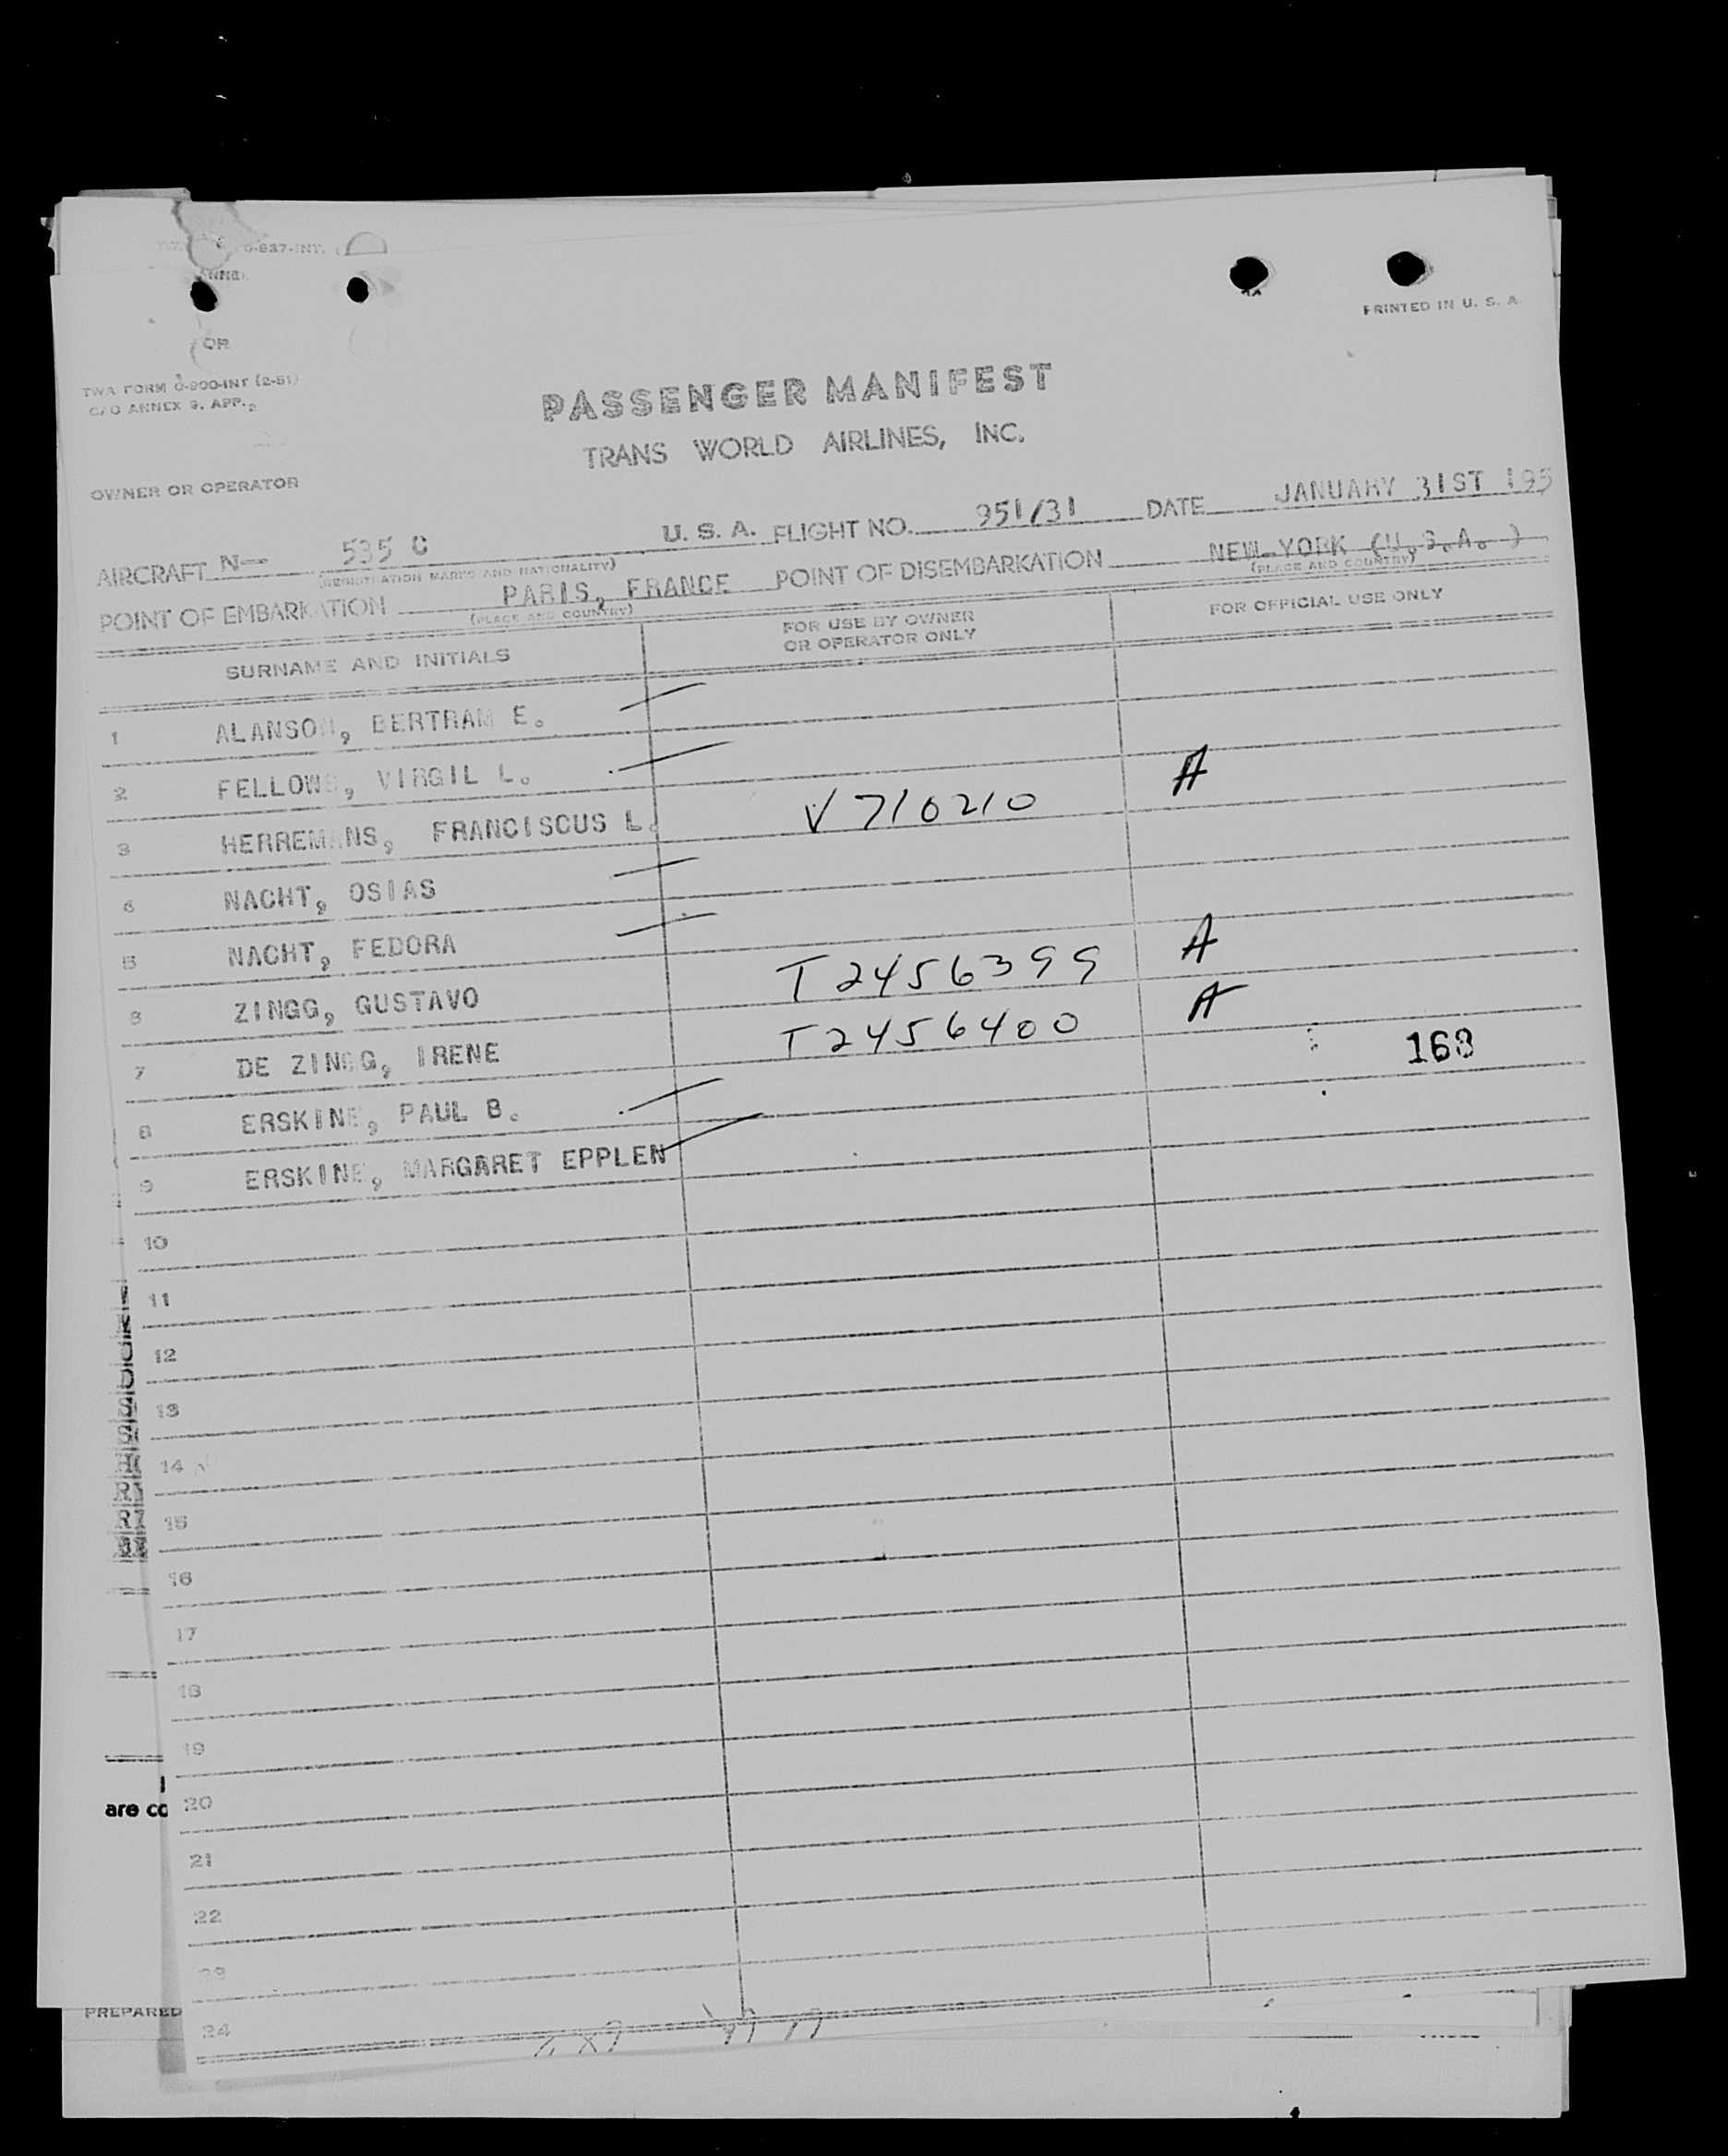 PRINTED IN U. S. A.
OR
TWA FORM 0-900-INT (2-51)
C/O ANNEX 9, APP. 2
PASSENGER MANIFEST
TRANS WORLD AIRLINES, INC.
OWNER OR OPERATOR
AIRCRAFT N— 535 C U. S. A. FLIGHT NO. 951/31 DATE JANUARY 31ST 195
(REGISTRATION MARKS AND NATIONALITY)
POINT OF EMBARKATION PARIS, FRANCE POINT OF DISEMBARKATION NEW-YORK (U.S.A. )
(PLACE AND COUNTRY) (PLACE AND COUNTRY)
SURNAME AND INITIALS FOR USE BY OWNER OR OPERATOR ONLY FOR OFFICIAL USE ONLY
1 ALANSON, BERTRAM E.
2 FELLOWS, VIRGIL L.
3 HERREMANS, FRANCISCUS L. V 710210 A
4 NACHT, OSIAS
5 NACHT, FEDORA
6 ZINGG, GUSTAVO T 2456399 A
7 DE ZINGG, IRENE T 2456400 A
168
8 ERSKINE, PAUL B.
9 ERSKINE, MARGARET EPPLEN
10
11
12
13
14
15
16
17
18
19
are co
20
21
22
23
PREPARED
24